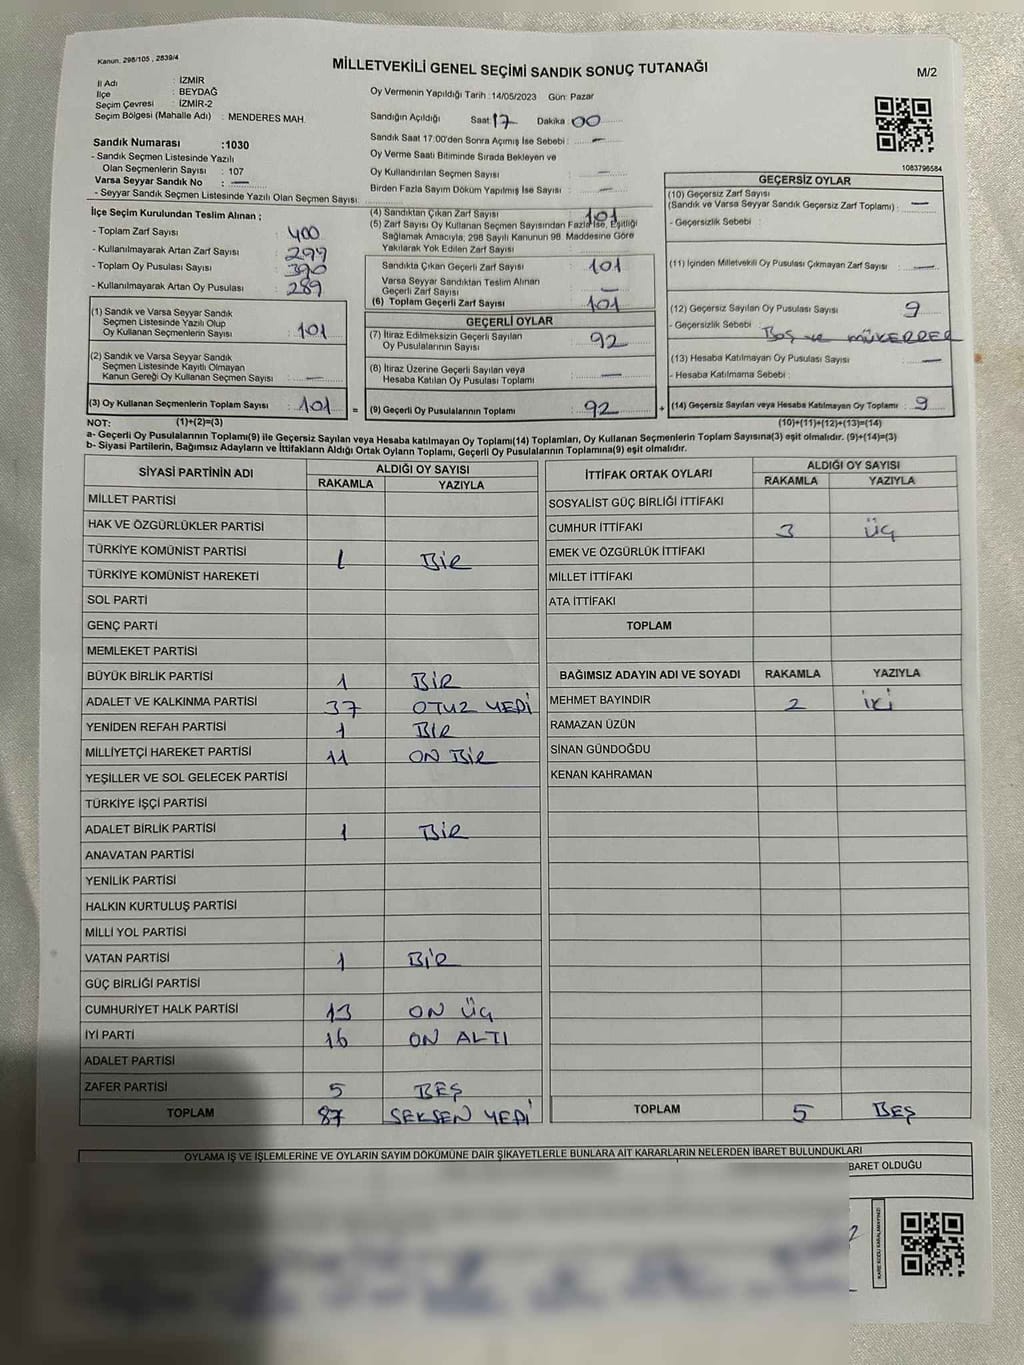 Kanun. 298/105 , 2839/4
MİLLETVEKİLİ GENEL SEÇİMİ SANDIK SONUÇ TUTANAĞI
M/2
İl Adı : İZMİR
İlçe : BEYDAĞ
Seçim Çevresi : İZMİR-2
Seçim Bölgesi (Mahalle Adı) : MENDERES MAH.
Oy Vermenin Yapıldığı Tarih :14/05/2023 Gün: Pazar
Sandığın Açıldığı Saat: 17 Dakika : 00
Sandık Saat 17:00'den Sonra Açımış İse Sebebi : —
Oy Verme Saati Bitiminde Sırada Bekleyen ve
Oy Kullandırılan Seçmen Sayısı : —
Birden Fazla Sayım Döküm Yapılmış İse Sayısı : —
1083796584
Sandık Numarası :1030
- Sandık Seçmen Listesinde Yazılı
Olan Seçmenlerin Sayısı : 107
Varsa Seyyar Sandık No : —
- Seyyar Sandık Seçmen Listesinde Yazılı Olan Seçmen Sayısı:
İlçe Seçim Kurulundan Teslim Alınan ;
- Toplam Zarf Sayısı : 400
- Kullanılmayarak Artan Zarf Sayısı : 299
- Toplam Oy Pusulası Sayısı : 390
- Kullanılmayarak Artan Oy Pusulası : 289
(1) Sandık ve Varsa Seyyar Sandık
Seçmen Listesinde Yazılı Olup
Oy Kullanan Seçmenlerin Sayısı : 101
(2) Sandık ve Varsa Seyyar Sandık
Seçmen Listesinde Kayıtlı Olmayan
Kanun Gereği Oy Kullanan Seçmen Sayısı : —
(3) Oy Kullanan Seçmenlerin Toplam Sayısı : 101 =
(4) Sandıktan Çıkan Zarf Sayısı : 101
(5) Zarf Sayısı Oy Kullanan Seçmen Sayısından Fazla İse, Eşitliği
Sağlamak Amacıyla, 298 Sayılı Kanunun 98. Maddesine Göre
Yakılarak Yok Edilen Zarf Sayısı :
Sandıkta Çıkan Geçerli Zarf Sayısı : 101
Varsa Seyyar Sandıktan Teslim Alınan
Geçerli Zarf Sayısı : —
(6) Toplam Geçerli Zarf Sayısı : 101
GEÇERLİ OYLAR
(7) İtiraz Edilmeksizin Geçerli Sayılan
Oy Pusulalarının Sayısı : 92
(8) İtiraz Üzerine Geçerli Sayılan veya
Hesaba Katılan Oy Pusulası Toplamı : —
(9) Geçerli Oy Pusulalarının Toplamı : 92 +
GEÇERSİZ OYLAR
(10) Geçersiz Zarf Sayısı
(Sandık ve Varsa Seyyar Sandık Geçersiz Zarf Toplamı) : —
- Geçersizlik Sebebi :
(11) İçinden Milletvekili Oy Pusulası Çıkmayan Zarf Sayısı : —
(12) Geçersiz Sayılan Oy Pusulası Sayısı : 9
- Geçersizlik Sebebi : Boş ve MÜKERRER
(13) Hesaba Katılmayan Oy Pusulası Sayısı : —
- Hesaba Katılmama Sebebi :
(14) Geçersiz Sayılan veya Hesaba Katılmayan Oy Toplamı : 9
NOT: (1)+(2)=(3) (10)+(11)+(12)+(13)=(14)
a- Geçerli Oy Pusulalarının Toplamı(9) ile Geçersiz Sayılan veya Hesaba katılmayan Oy Toplamı(14) Toplamları, Oy Kullanan Seçmenlerin Toplam Sayısına(3) eşit olmalıdır. (9)+(14)=(3)
b- Siyasi Partilerin, Bağımsız Adayların ve İttifakların Aldığı Ortak Oyların Toplamı, Geçerli Oy Pusulalarının Toplamına(9) eşit olmalıdır.
SİYASİ PARTİNİN ADI ALDIĞI OY SAYISI
RAKAMLA YAZIYLA
MİLLET PARTİSİ
HAK VE ÖZGÜRLÜKLER PARTİSİ
TÜRKİYE KOMÜNİST PARTİSİ 1 BİR
TÜRKİYE KOMÜNİST HAREKETİ
SOL PARTİ
GENÇ PARTİ
MEMLEKET PARTİSİ
BÜYÜK BİRLİK PARTİSİ 1 BİR
ADALET VE KALKINMA PARTİSİ 37 OTUZ YEDİ
YENİDEN REFAH PARTİSİ 1 BİR
MİLLİYETÇİ HAREKET PARTİSİ 11 ON BİR
YEŞİLLER VE SOL GELECEK PARTİSİ
TÜRKİYE İŞÇİ PARTİSİ
ADALET BİRLİK PARTİSİ 1 BİR
ANAVATAN PARTİSİ
YENİLİK PARTİSİ
HALKIN KURTULUŞ PARTİSİ
MİLLİ YOL PARTİSİ
VATAN PARTİSİ 1 BİR
GÜÇ BİRLİĞİ PARTİSİ
CUMHURİYET HALK PARTİSİ 13 ON ÜÇ
İYİ PARTİ 16 ON ALTI
ADALET PARTİSİ
ZAFER PARTİSİ 5 BEŞ
TOPLAM 87 SEKSEN YEDİ
İTTİFAK ORTAK OYLARI ALDIĞI OY SAYISI
RAKAMLA YAZIYLA
SOSYALİST GÜÇ BİRLİĞİ İTTİFAKI
CUMHUR İTTİFAKI 3 ÜÇ
EMEK VE ÖZGÜRLÜK İTTİFAKI
MİLLET İTTİFAKI
ATA İTTİFAKI
TOPLAM
BAĞIMSIZ ADAYIN ADI VE SOYADI RAKAMLA YAZIYLA
MEHMET BAYINDIR 2 İKİ
RAMAZAN ÜZÜN
SİNAN GÜNDOĞDU
KENAN KAHRAMAN
TOPLAM 5 BEŞ
OYLAMA İŞ VE İŞLEMLERİNE VE OYLARIN SAYIM DÖKÜMÜNE DAİR ŞİKAYETLERLE BUNLARA AİT KARARLARIN NELERDEN İBARET BULUNDUKLARI
BARET OLDUĞU
KARE KODU KARALAMAYINIZ!